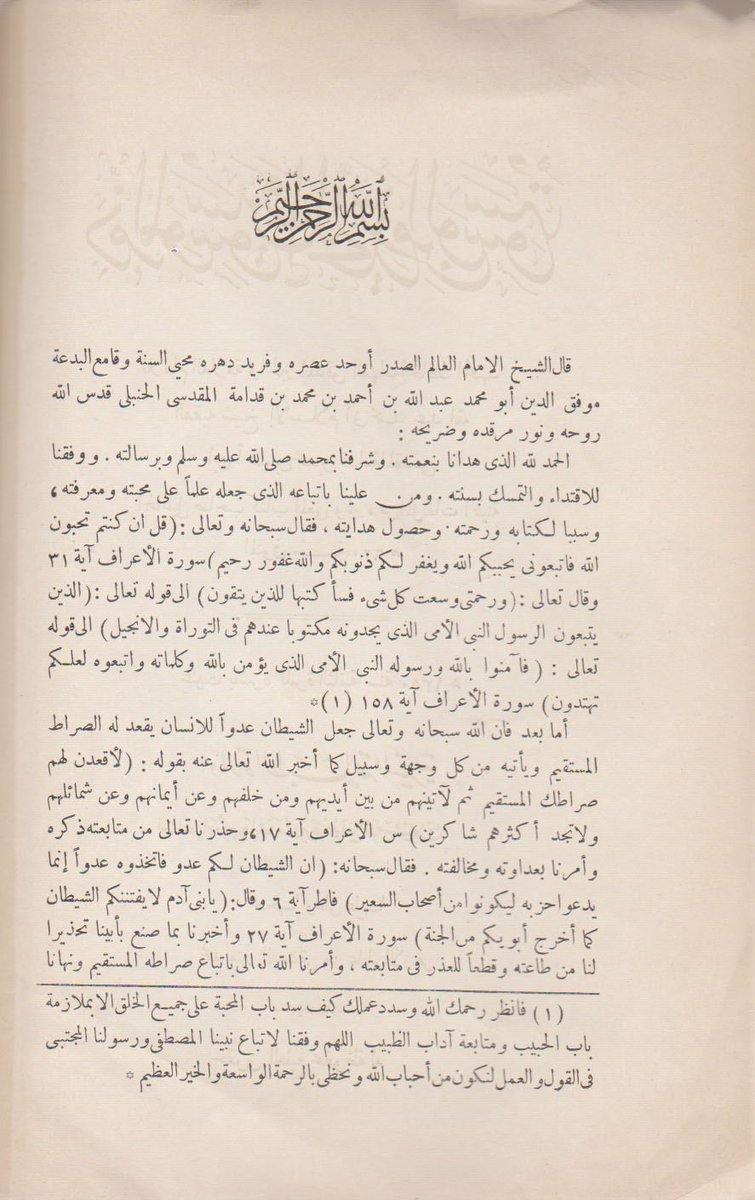 بسم الله الرحمن الرحيم
قال الشيخ الامام العالم الصدر أوحد عصره وفريد دهره محيي السنة وقامع البدعة
موفق الدين أبو محمد عبد الله بن أحمد بن محمد بن قدامة المقدسى الحنبلى قدس الله
روحه ونور مرقده وضريحه :
الحمد لله الذى هدانا بنعمته . وشرفنا بمحمد صلى الله عليه وسلم وبرسالته . ووفقنا
للاقتداء والتمسك بسنته . ومن علينا باتباعه الذى جعله علماً على محبته ومعرفته ،
وسببا لكتابه ورحمته . وحصول هدايته ، فقال سبحانه وتعالى : (قل ان كنتم تحبون
الله فاتبعونى يحببكم الله ويغفر لكم ذنوبكم والله غفور رحيم) سورة الأعراف آية ٣١
وقال تعالى : (ورحمتى وسعت كل شىء فسأ كتبها للذين يتقون) الى قوله تعالى : (الذين
يتبعون الرسول النبى الأمى الذى يجدونه مكتوبا عندهم فى التوراة والانجيل) الى قوله
تعالى : (فآمنوا بالله ورسوله النبى الأمى الذى يؤمن بالله وكلماته واتبعوه لعلكم
تهتدون) سورة الأعراف آية ١٥٨ (١)*
أما بعد فان الله سبحانه وتعالى جعل الشيطان عدواً للانسان يقعد له الصراط
المستقيم ويأتيه من كل وجهة وسبيل كما أخبر الله تعالى عنه بقوله : (لأقعدن لهم
صراطك المستقيم ثم لآتينهم من بين أيديهم ومن خلفهم وعن أيمانهم وعن شمائلهم
ولا تجد أ كثرهم شاكرين) س الأعراف آية ١٧، وحذرنا تعالى من متابعته ذكره
وأمرنا بعداوته ومخالفته . فقال سبحانه : (ان الشيطان لكم عدو فاتخذوه عدواً إنما
يدعوا حزبه ليكونوا من أصحاب السعير) فاطر آية ٦ وقال : (يابنى آدم لا يفتننكم الشيطان
كما أخرج أبويكم من الجنة) سورة الأعراف آية ٢٧ وأخبرنا بما صنع بأبينا تحذيرا
لنا من طاعته وقطعاً للعذر فى متابعته ، وأمرنا الله تعالى باتباع صراطه المستقيم ونهانا
(١) فانظر رحمك الله وسدد عملك كيف سد باب المحبة على جميع الخلق الا بملازمة
باب الحبيب ومتابعة آداب الطبيب اللهم وفقنا لاتباع نبينا المصطفى ورسولنا المجتبى
فى القول والعمل لنكون من أحباب الله ونحظى بالرحمة الواسعة والخير العظيم *